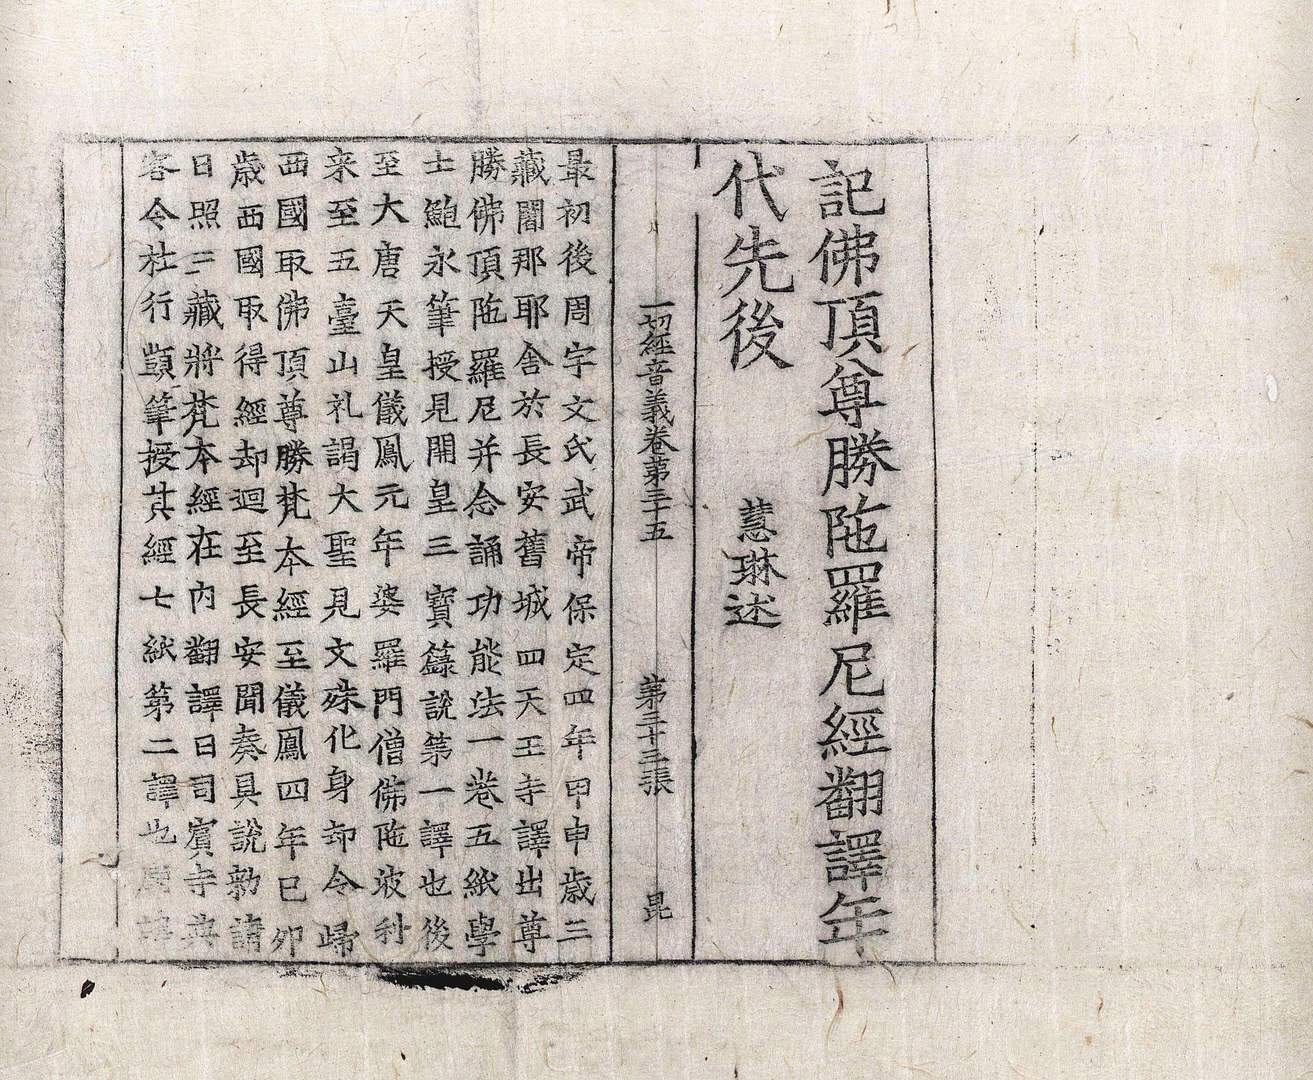 記佛頂尊勝陁羅尼經翻譯年
代先後 慧琳述
一切經音義卷第三十五 第三十三張 昆
最初後周宇文氏武帝保定四年甲申歳三
藏闍那耶舍於長安舊城四天王寺譯出尊
勝佛頂陁羅尼并念誦功能法一卷五紙學
士鮑永筆授見開皇三寶籙說第一譯也後
至大唐天皇儀鳳元年婆羅門僧佛陁波利
来至五臺山礼謁大聖見文殊化身却令歸
西國取佛頂尊勝梵本經至儀鳳四年巳夘
歳西國取得經却迴至長安聞奏具說勑請
日照三藏將梵本經在内翻譯日司賔寺典
客令杜行顗筆授其經七紙第二譯也